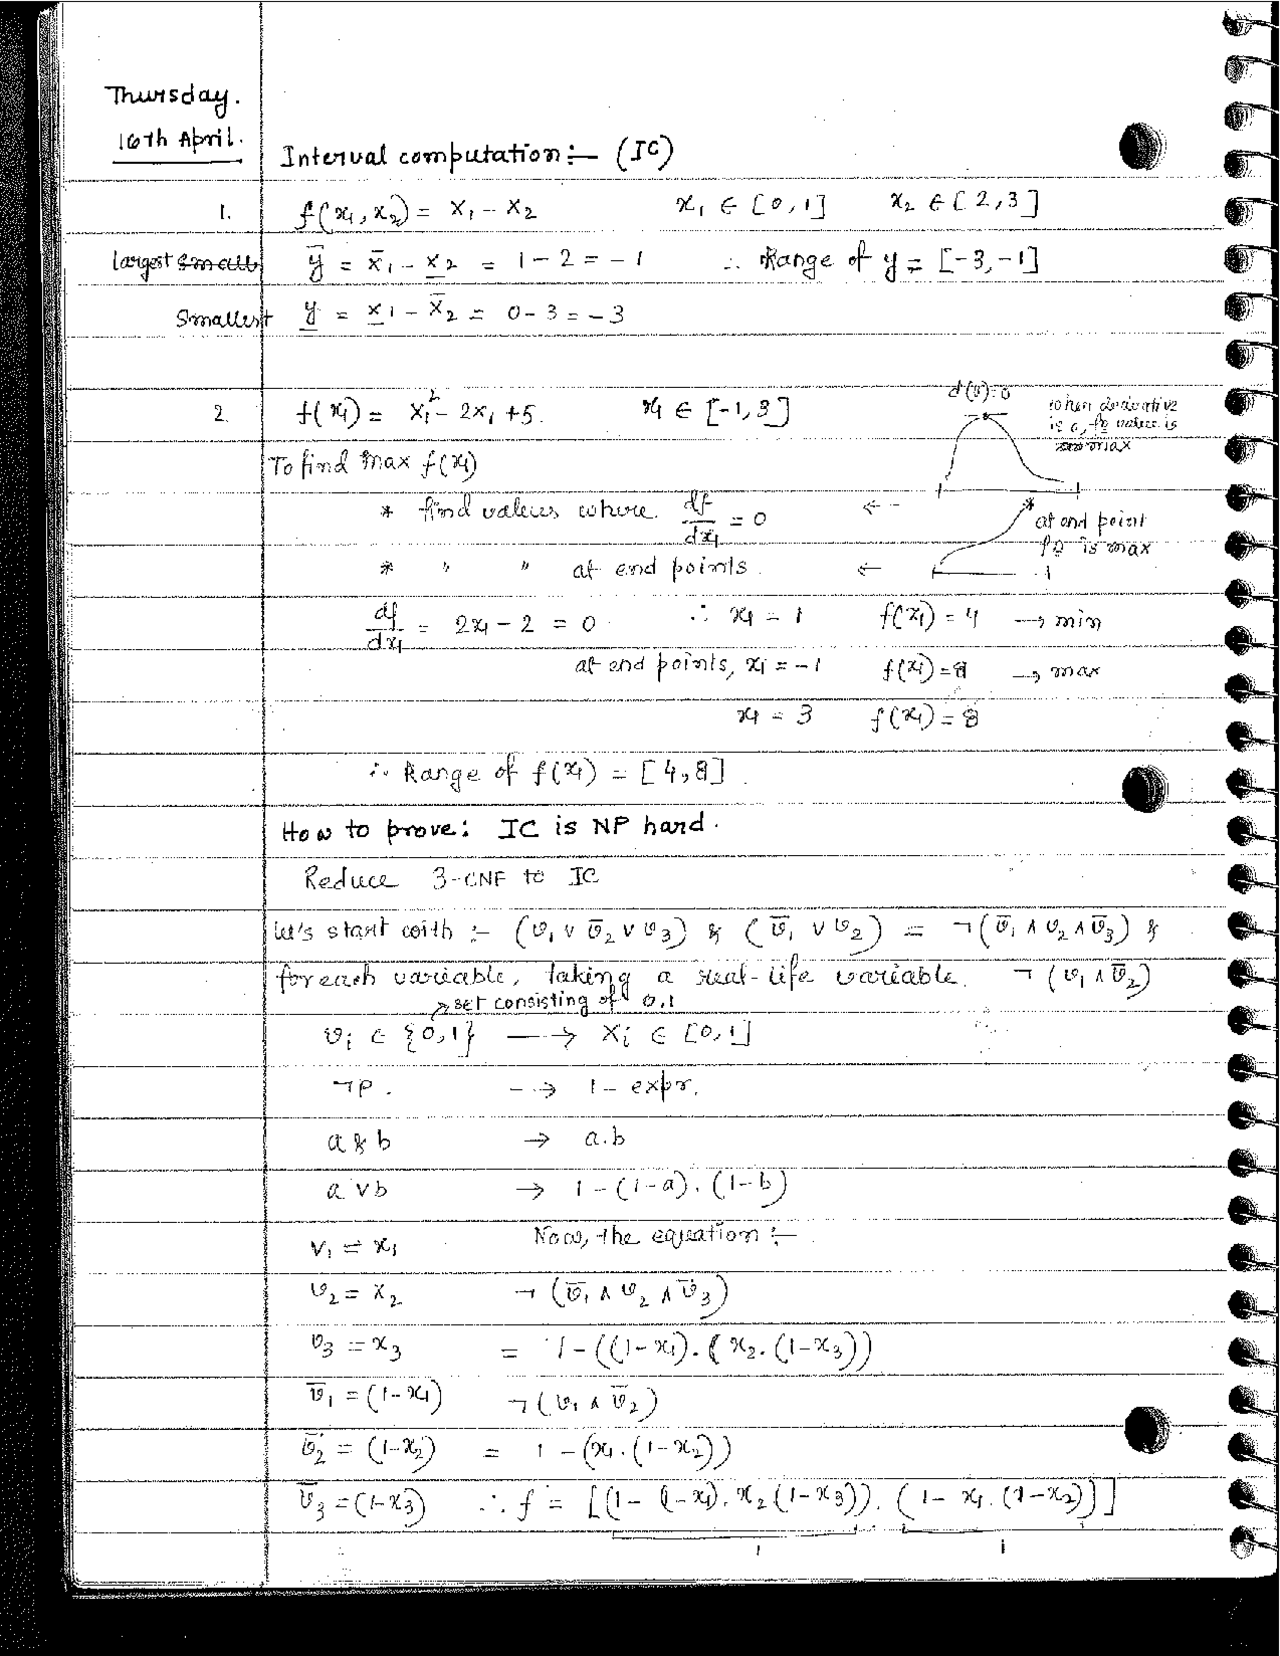 Thursday.
16th April.
Interval computation :- (IC)
1. f(x₁, x₂) = x₁ - x₂ x₁ ∈ [0,1] x₂ ∈ [2,3]
largest ȳ = x̄₁ - x̲₂ = 1 - 2 = -1 ∴ Range of y = [-3,-1]
Smallest y̲ = x̲₁ - x̄₂ = 0 - 3 = -3
2. f(x₁) = x₁² - 2x₁ + 5. x₁ ∈ [-1,3]
when derivative
is 0, fn value is
max
To find max f(x₁)
* find values where df/dx₁ = 0 ←
at end point
fn is max
* " " at end points. ←
df/dx₁ = 2x₁ - 2 = 0 ∴ x₁ = 1 f(x₁) = 4 → min
at end points, x₁ = -1 f(x₁) = 8 → max
x₁ = 3 f(x₁) = 8
∴ Range of f(x₁) = [4,8]
How to prove: IC is NP hard.
Reduce 3-CNF to IC
let's start with :- (v₁ ∨ v̄₂ ∨ v₃) & (v̄₁ ∨ v₂) = ¬(v̄₁ ∧ v₂ ∧ v̄₃) &
for each variable, taking a real-life variable. ¬(v₁ ∧ v̄₂)
set consisting of 0,1
vᵢ ∈ {0,1} → xᵢ ∈ [0,1]
¬p. → 1 - expr.
a & b → a.b
a ∨ b → 1 - (1-a).(1-b)
v₁ = x₁ Now, the equation :-
v₂ = x₂ ¬(v̄₁ ∧ v₂ ∧ v̄₃)
v₃ = x₃ = 1 - ((1-x₁).(x₂.(1-x₃))
v̄₁ = (1-x₁) ¬(v₁ ∧ v̄₂)
v̄₂ = (1-x₂) = 1 - (x₁.(1-x₂))
v̄₃ = (1-x₃) ∴ f = [(1 - (1-x₁).x₂(1-x₃)).(1 - x₁.(1-x₂))]
1 1